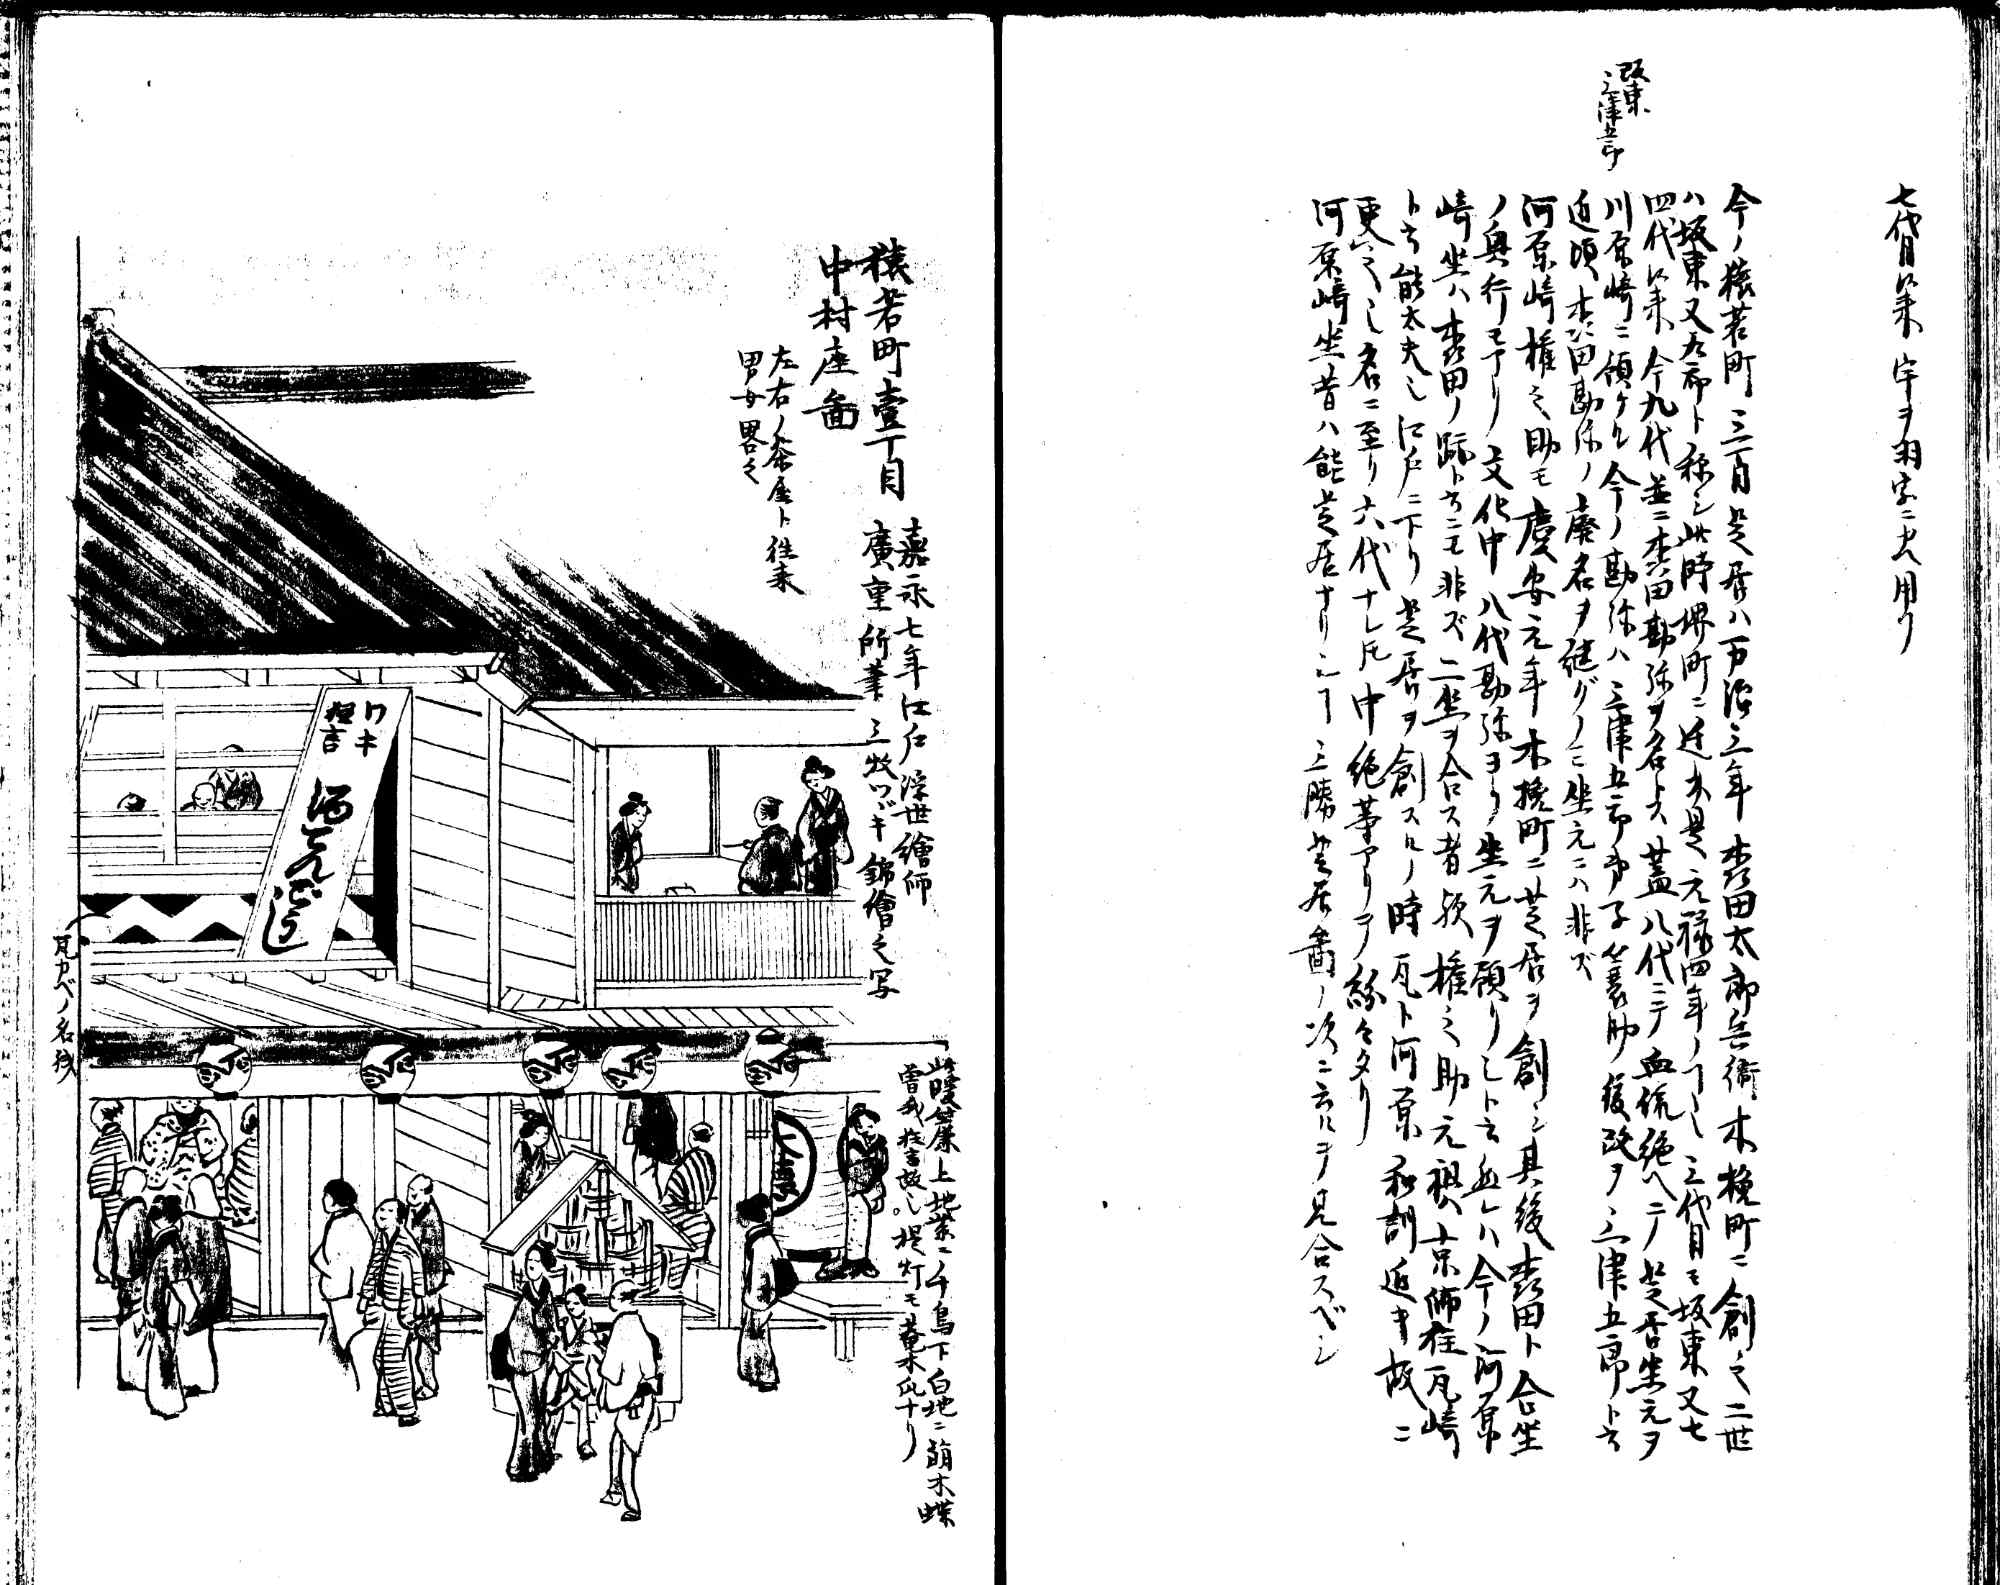 七代目以来宇ヲ羽字ニ更ヘ用フ
今ノ猿若町三丁目芝居ハ万治三年森田太郎兵衛木挽町ニ創之二世
ハ坂東又九郎ト称シ此時堺町ニ近ク是元禄四年ノコト也三代目モ坂東又七
四代以来今九代並ニ森田勘弥ヲ名トス蓋八代ニテ血統絶ヘテ芝居坐元ヲ
川原崎ニ預ケル今ノ勘弥ハ三津五郎弟子簔助後改テ三津五郎ト云
坂東
三津五郎
近頃森田勘弥ノ廃名ヲ継グノミ坐元ニハ非ズ
河原崎権之助モ慶安元年木挽町ニ芝居ヲ創シ其後森田ト合坐
ノ興行モアリ文化中八代勘弥ヨリ坐元ヲ預リシト云然レハ今ノ河原
崎坐ハ森田ノ跡ト云ニモ非ズ二坐ヲ合ス者歟権之助元祖ハ京師住瓦崎
ト云能太夫也江戸ニ下リ芝居ヲ創スルノ時瓦ト河原和訓近キ故ニ
更之シ名ニ至リ六代ナレドモ中絶等アリテ紛々タリ
河原崎坐昔ハ能芝居ナリシコト三勝芝居図ノ次ニ云ルヲ見合スベシ
猿若町壹丁目
中村座畵
左右ノ茶屋ト往来
男女畧之
嘉永七年江戸浮世繪師
廣重所筆三枚ツヾキ錦繪之写
ワキ
狂言
此暖簾上地紫ニ千鳥下白地ニ萠木蝶
曽我狂言故也提灯モ萠木瓜ナリ
瓦カベノ名残